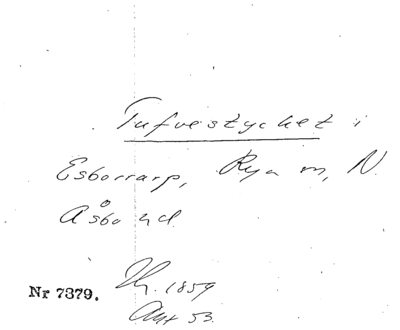 Tufvestycket i
Esborrarp, Rya sn, N.
Åsbo hd.
Nr 7379.
1859
Akt 53.